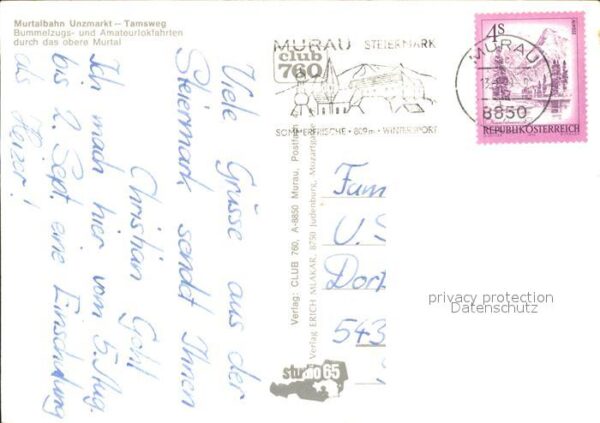 Murtalbahn Unzmarkt – Tamsweg
Bummelzugs- und Amateurlokfahrten
durch das obere Murtal
Viele Grüsse aus der
Steiermark sendet Ihnen
Christian Gohl
Ich mach hier vom 5. Aug.
bis 2. Sept. eine Einschulung
als Heizer!
Verlag: CLUB 760, A-8850 Murau, Postf
Verlag ERICH MLAKAR, 8750 Judenburg, Mozarts
studio 65
MURAU STEIERMARK
club
760
SOMMERFRISCHE · 809m · WINTERSPORT
MURAU
8850
4S
REPUBLIK ÖSTERREICH
Fam
U. S
Dor
543
privacy protection
Datenschutz